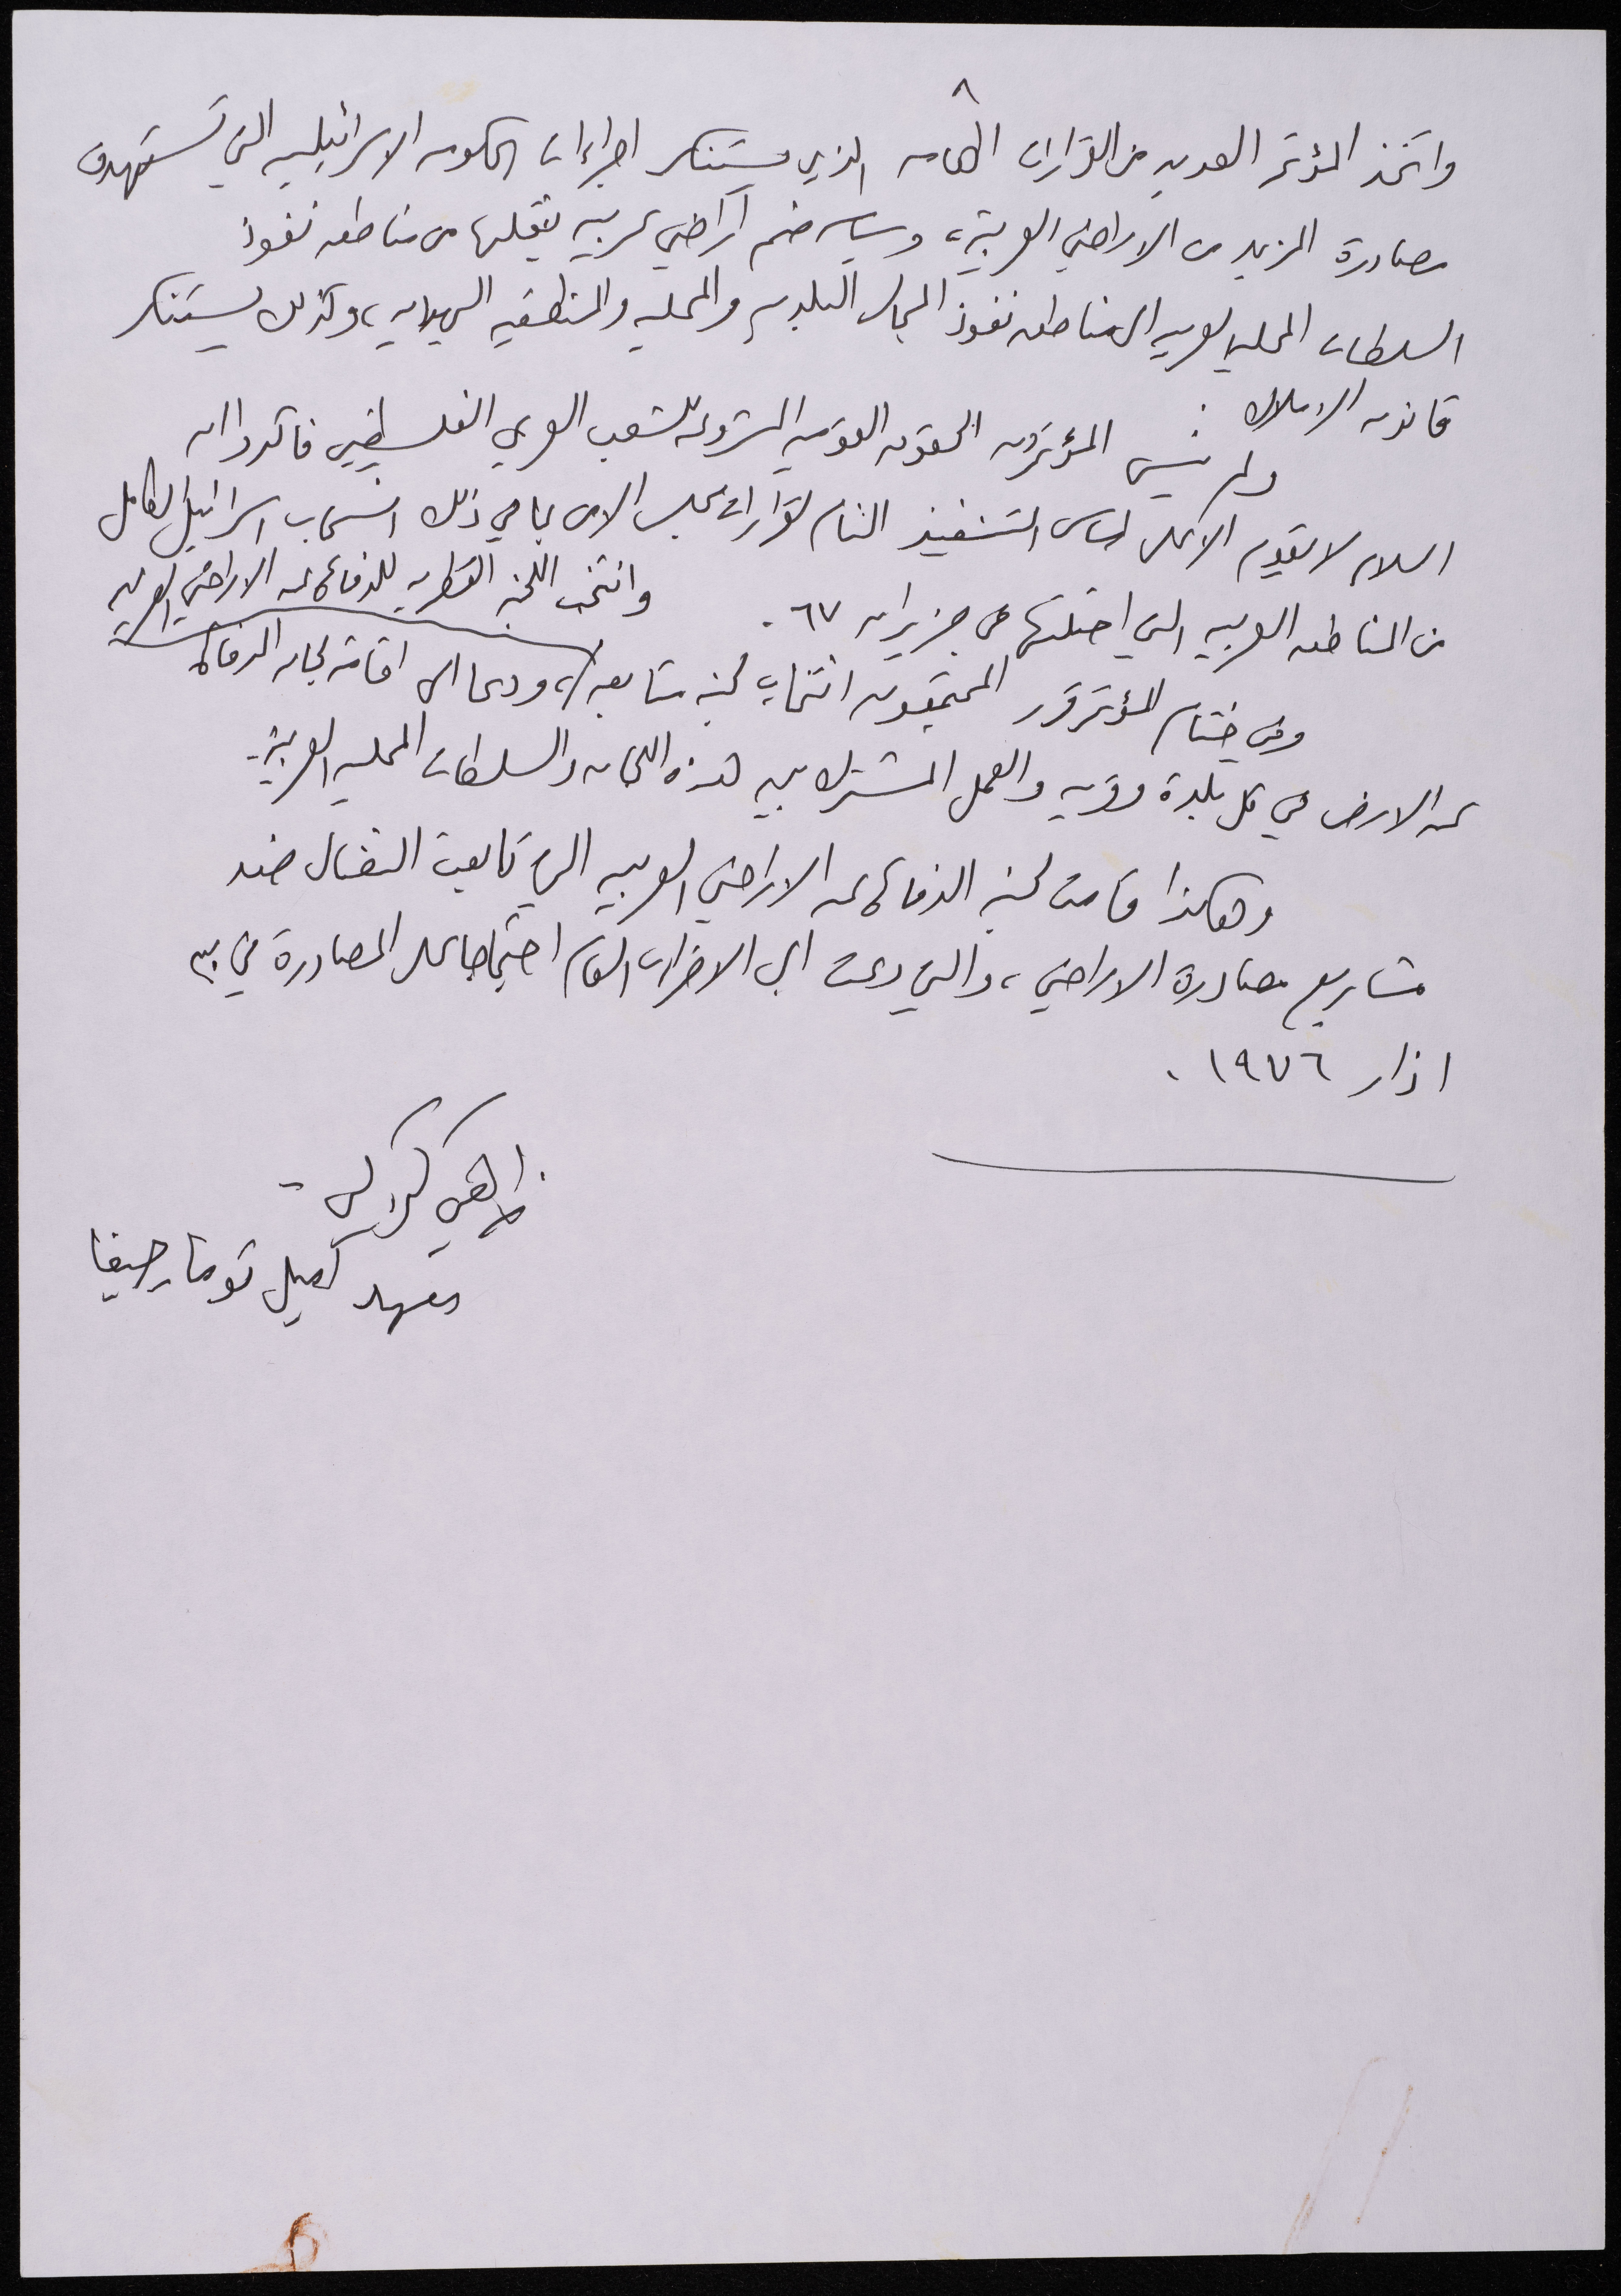 ٨
واتخذ المؤتمر العديد من القرارات الهامه الذي يستنكر اجراءات الحكومه الاسرائيليه التي تستهدف
مصادرة المزيد من الاراضي العربية، وسياسه ضم آراضي عربيه ينقلها من مناطق نفوذ
السلطات المحليه العربيه الى مناطق نفوذ المجالس البلديه والمحليه والمنطقيه اليهوديه، وكذلك يستنكر
قانون الاملاك.
ولم ينسى المؤتمرون الحقوق القوميه المشروعه للشعب العربي الفلسطيني فأكدوا ان
السلام لا يقوم الا على اساس التنفيذ التام لقرارات مجلس الامن بما في ذلك انسحاب اسرائيل الكامل
من المناطق العربيه التي احتلتها في حزيران ٦٧.
وانتخب اللجنه القطريه للدفاع عن الاراضي العربيه
وفي ختام المؤتمر قرر المجتمعون انتخاب لجنه متابعه، ودعا الى اقامة لجان الدفاع
عن الارض في كل بلدة وقريه والعمل المشترك بين هذه اللجان والسلطات المحليه العربية.
وهكذا قامت لجنه الدفاع عن الاراضي العربيه التي تابعت النضال ضد
مشاريع مصادرة الاراضي، والتي دعت الى الاضراب العام احتجاجا على المصادرة في ٣٠
اذار ١٩٧٦.
زاهي كركبي -
معهد اميل توما / حيفا